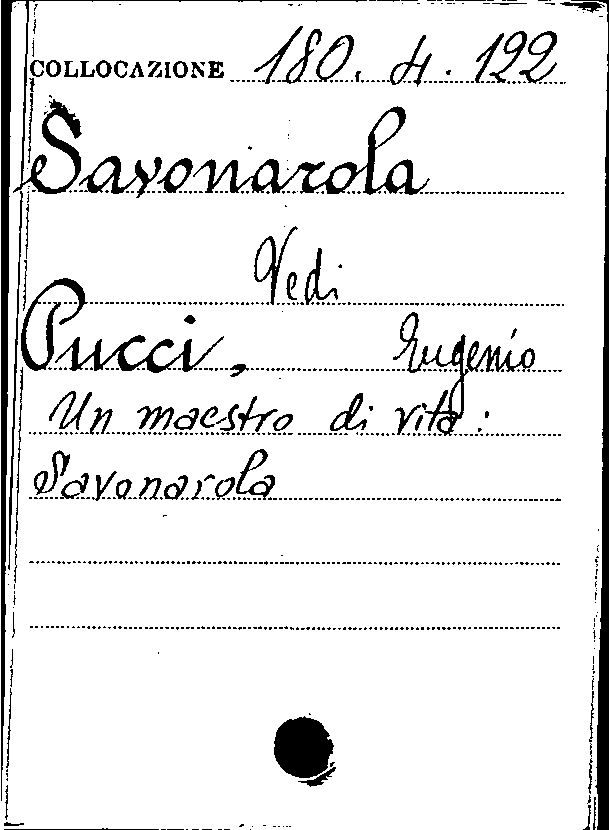 COLLOCAZIONE 180. 4. 122
Savonarola
Vedi
Pucci, Eugenio
Un maestro di vita:
Savonarola